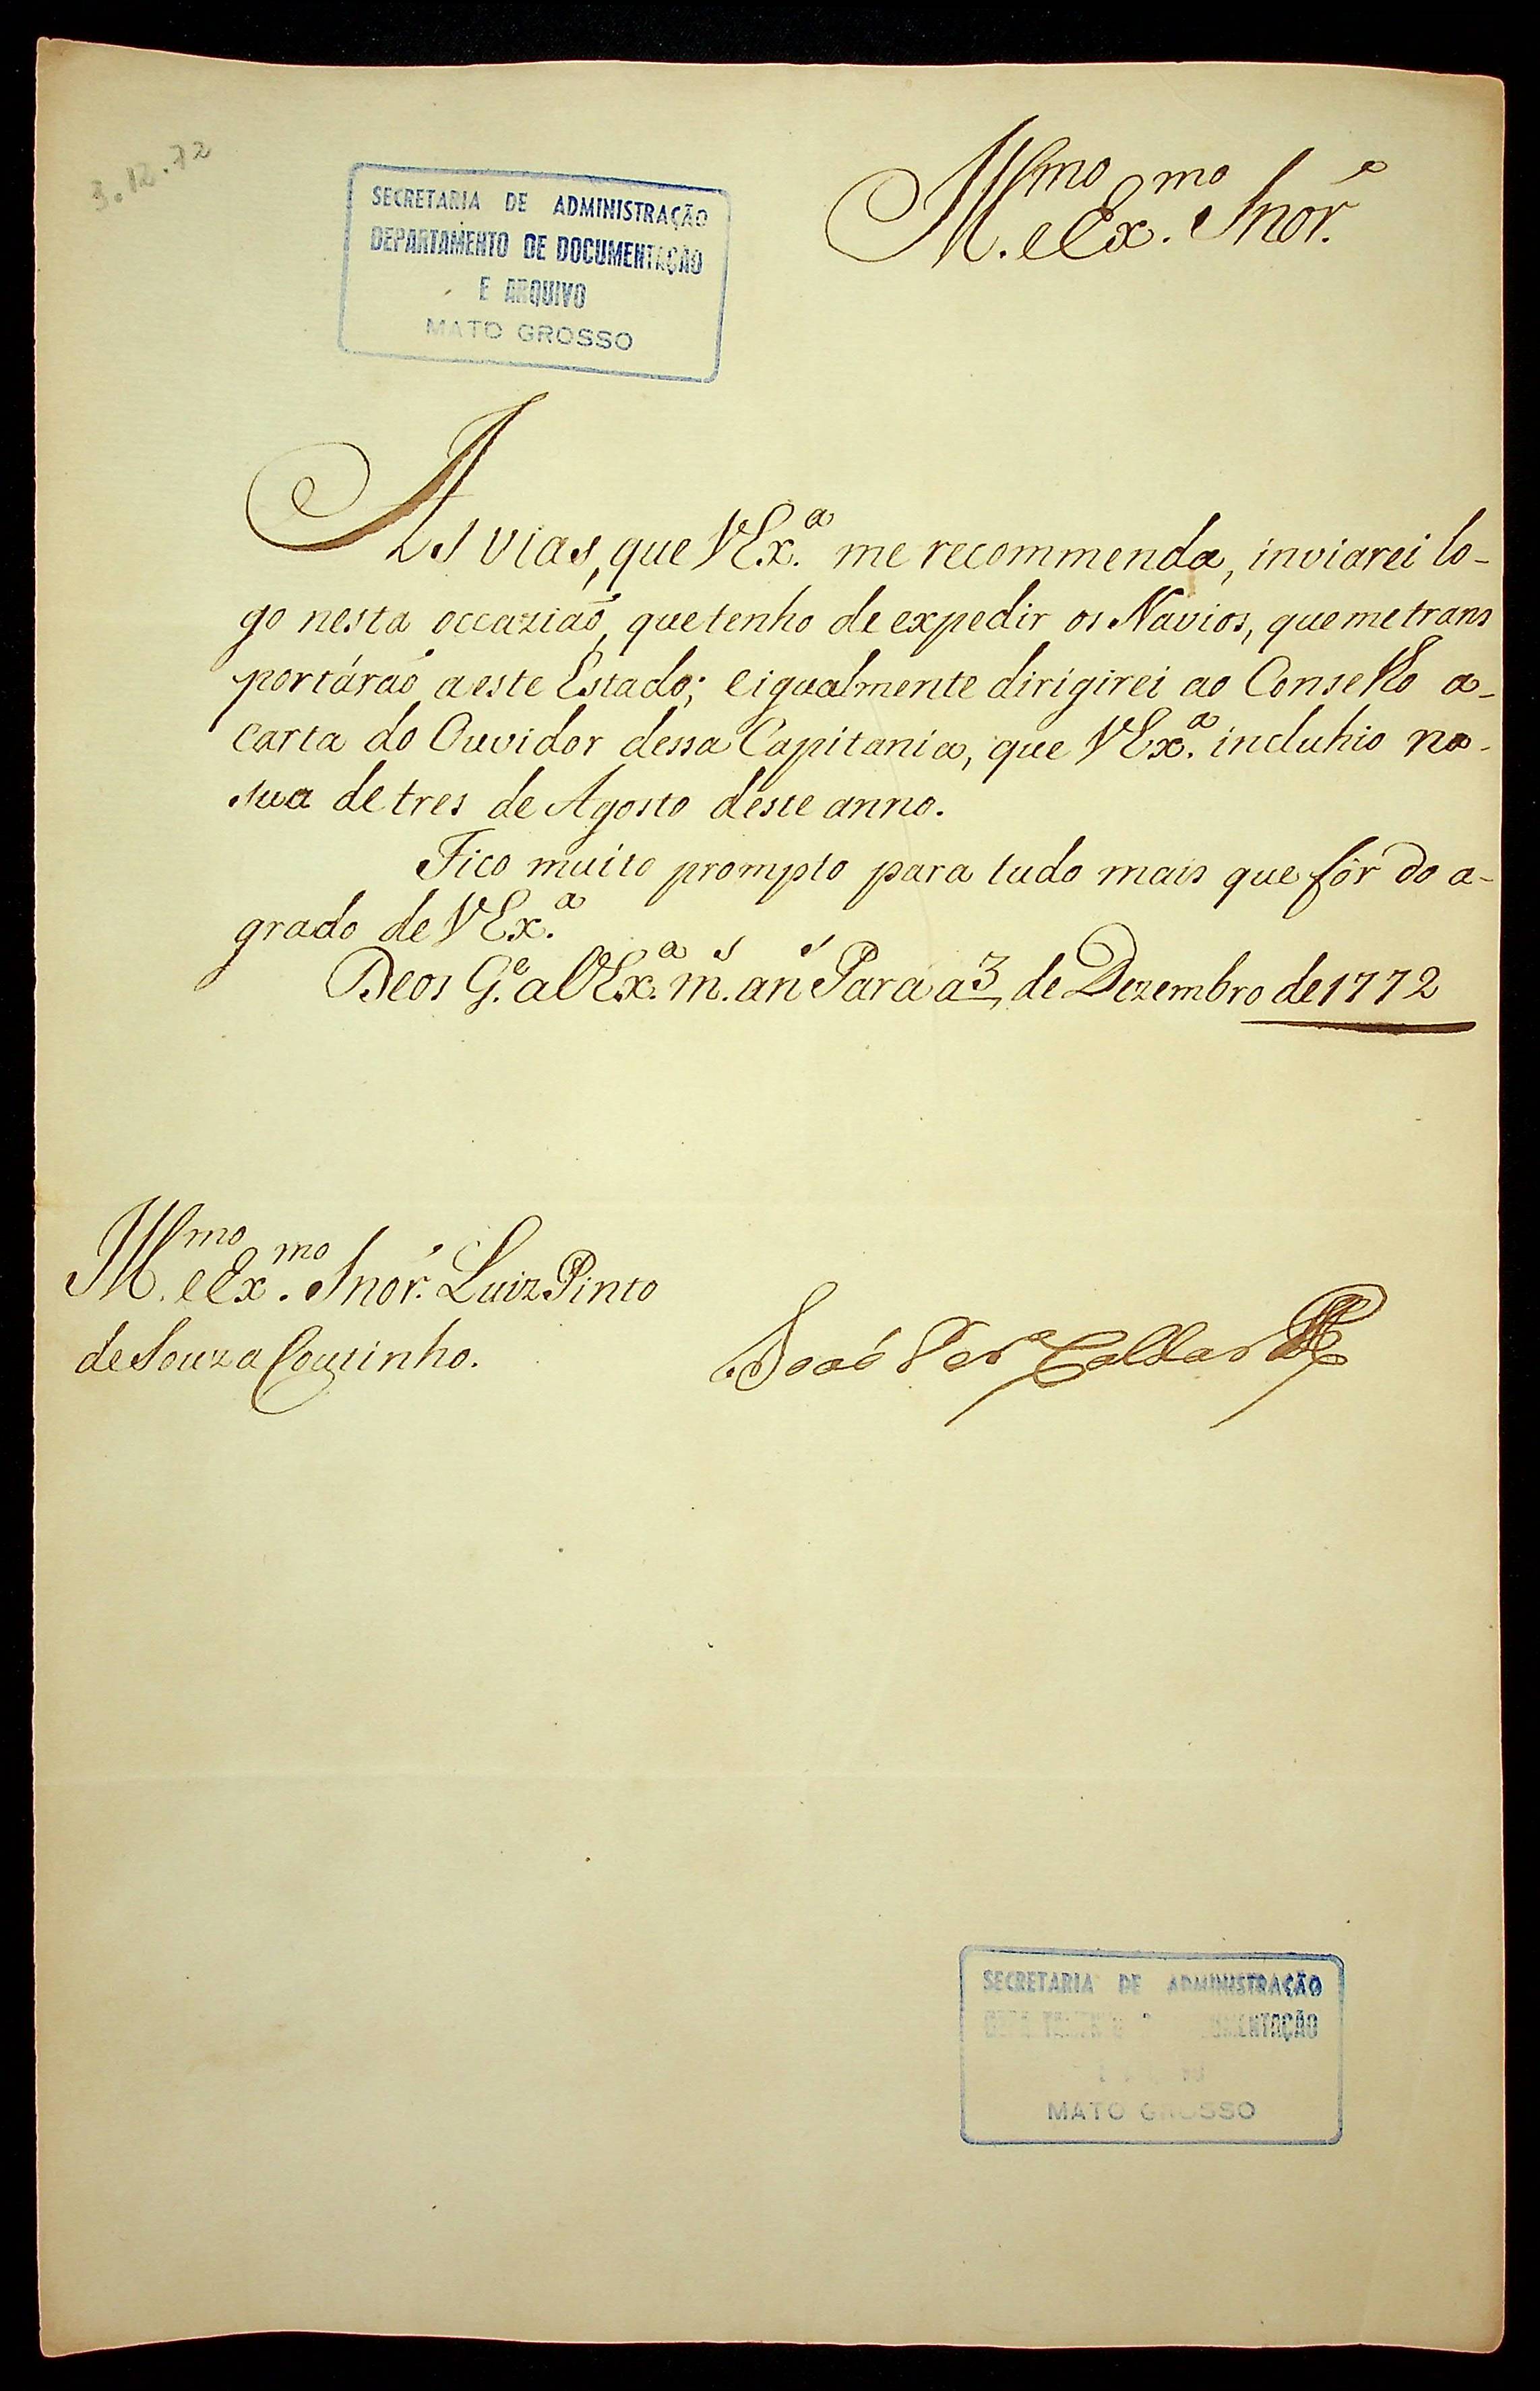 3.12.72
SECRETARIA DE ADMINISTRAÇÃO
DEPARTAMENTO DE DOCUMENTAÇÃO
E ARQUIVO
MATO GROSSO
Ill.mo e Ex.mo Snor.
As vias, que V Ex.a me recommenda, inviarei lo-
go nesta occaziaõ, que tenho de expedir os Navios, que me trans
portáraõ a este Estado; e igualmente dirigirei ao Conselho a-
carta do Ouvidor dessa Capitania, que V Ex.a incluhio na-
sua de tres de Agosto deste anno.
Fico muito prompto para tudo mais que fôr do a-
grado de V Ex.a
Deos G.e a V Ex.a m.s an.s Pará a 3 de Dezembro de 1772
Ill.mo e Ex.mo Snor. Luiz Pinto
de Souza Coutinho.
Joaõ Per.a Caldas
SECRETARIA DE ADMINISTRAÇÃO
MATO GROSSO